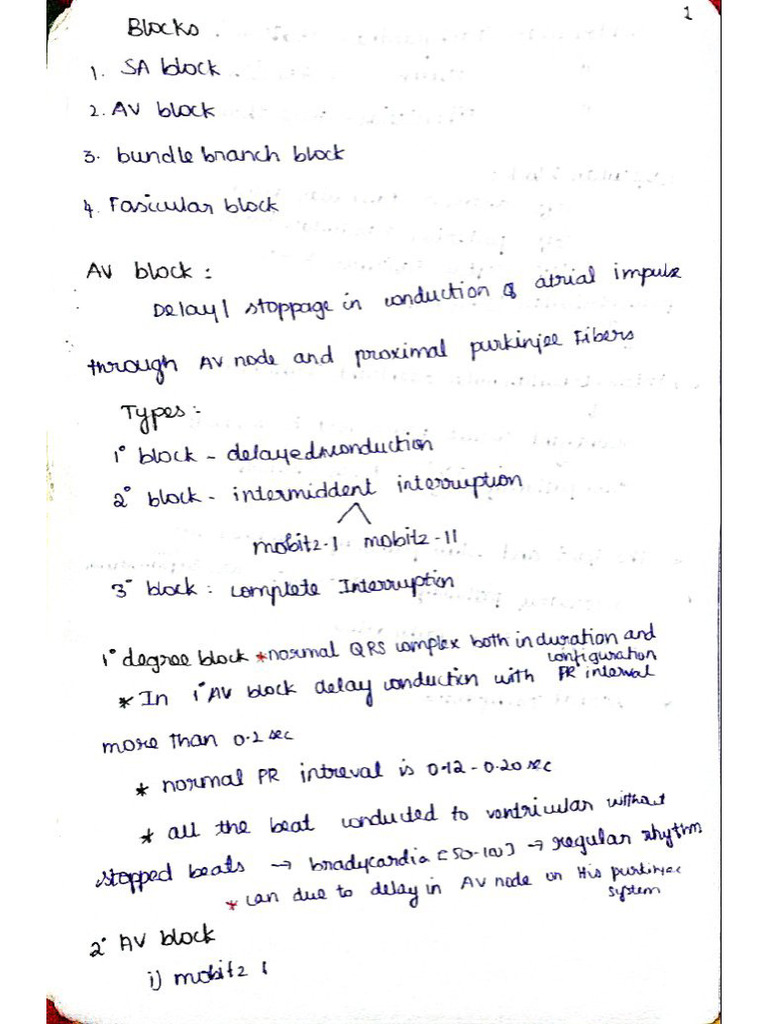 1
Blocks
1. SA block
2. AV block
3. bundle branch block
4. Fasicular block
AV block :
Delay/ stoppage in conduction of atrial impulse
through AV node and proximal purkinjee Fibers
Types :-
1° block - delayed conduction
2° block - intermiddent interruption
mobitz-I mobitz-II
3° block : complete Interruption
1° degree block *normal QRS complex both in duration and
configuration
* In 1° AV block delay conduction with PR interval
more than 0.2 sec
* normal PR intreval is 0.12 - 0.20 sec
* all the beat conducted to ventricular without
stopped beats → bradycardia [50-100] → regular rhythm
* can due to delay in AV node or His purkinjee
system
2° AV block
i) mobitz I